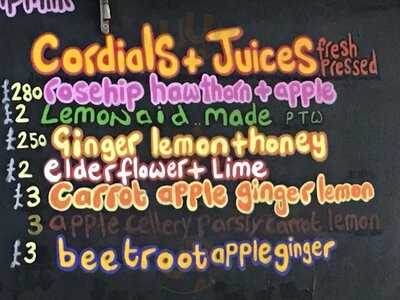 Cordials + Juices fresh pressed
£280 rosehip hawthorn + apple
£2 Lemonaid.. made PTW
£250 Ginger lemon + honey
£2 elderflower + Lime
£3 Carrot apple ginger lemon
3 apple cellery parsly carrot lemon
£3 beetroot apple ginger